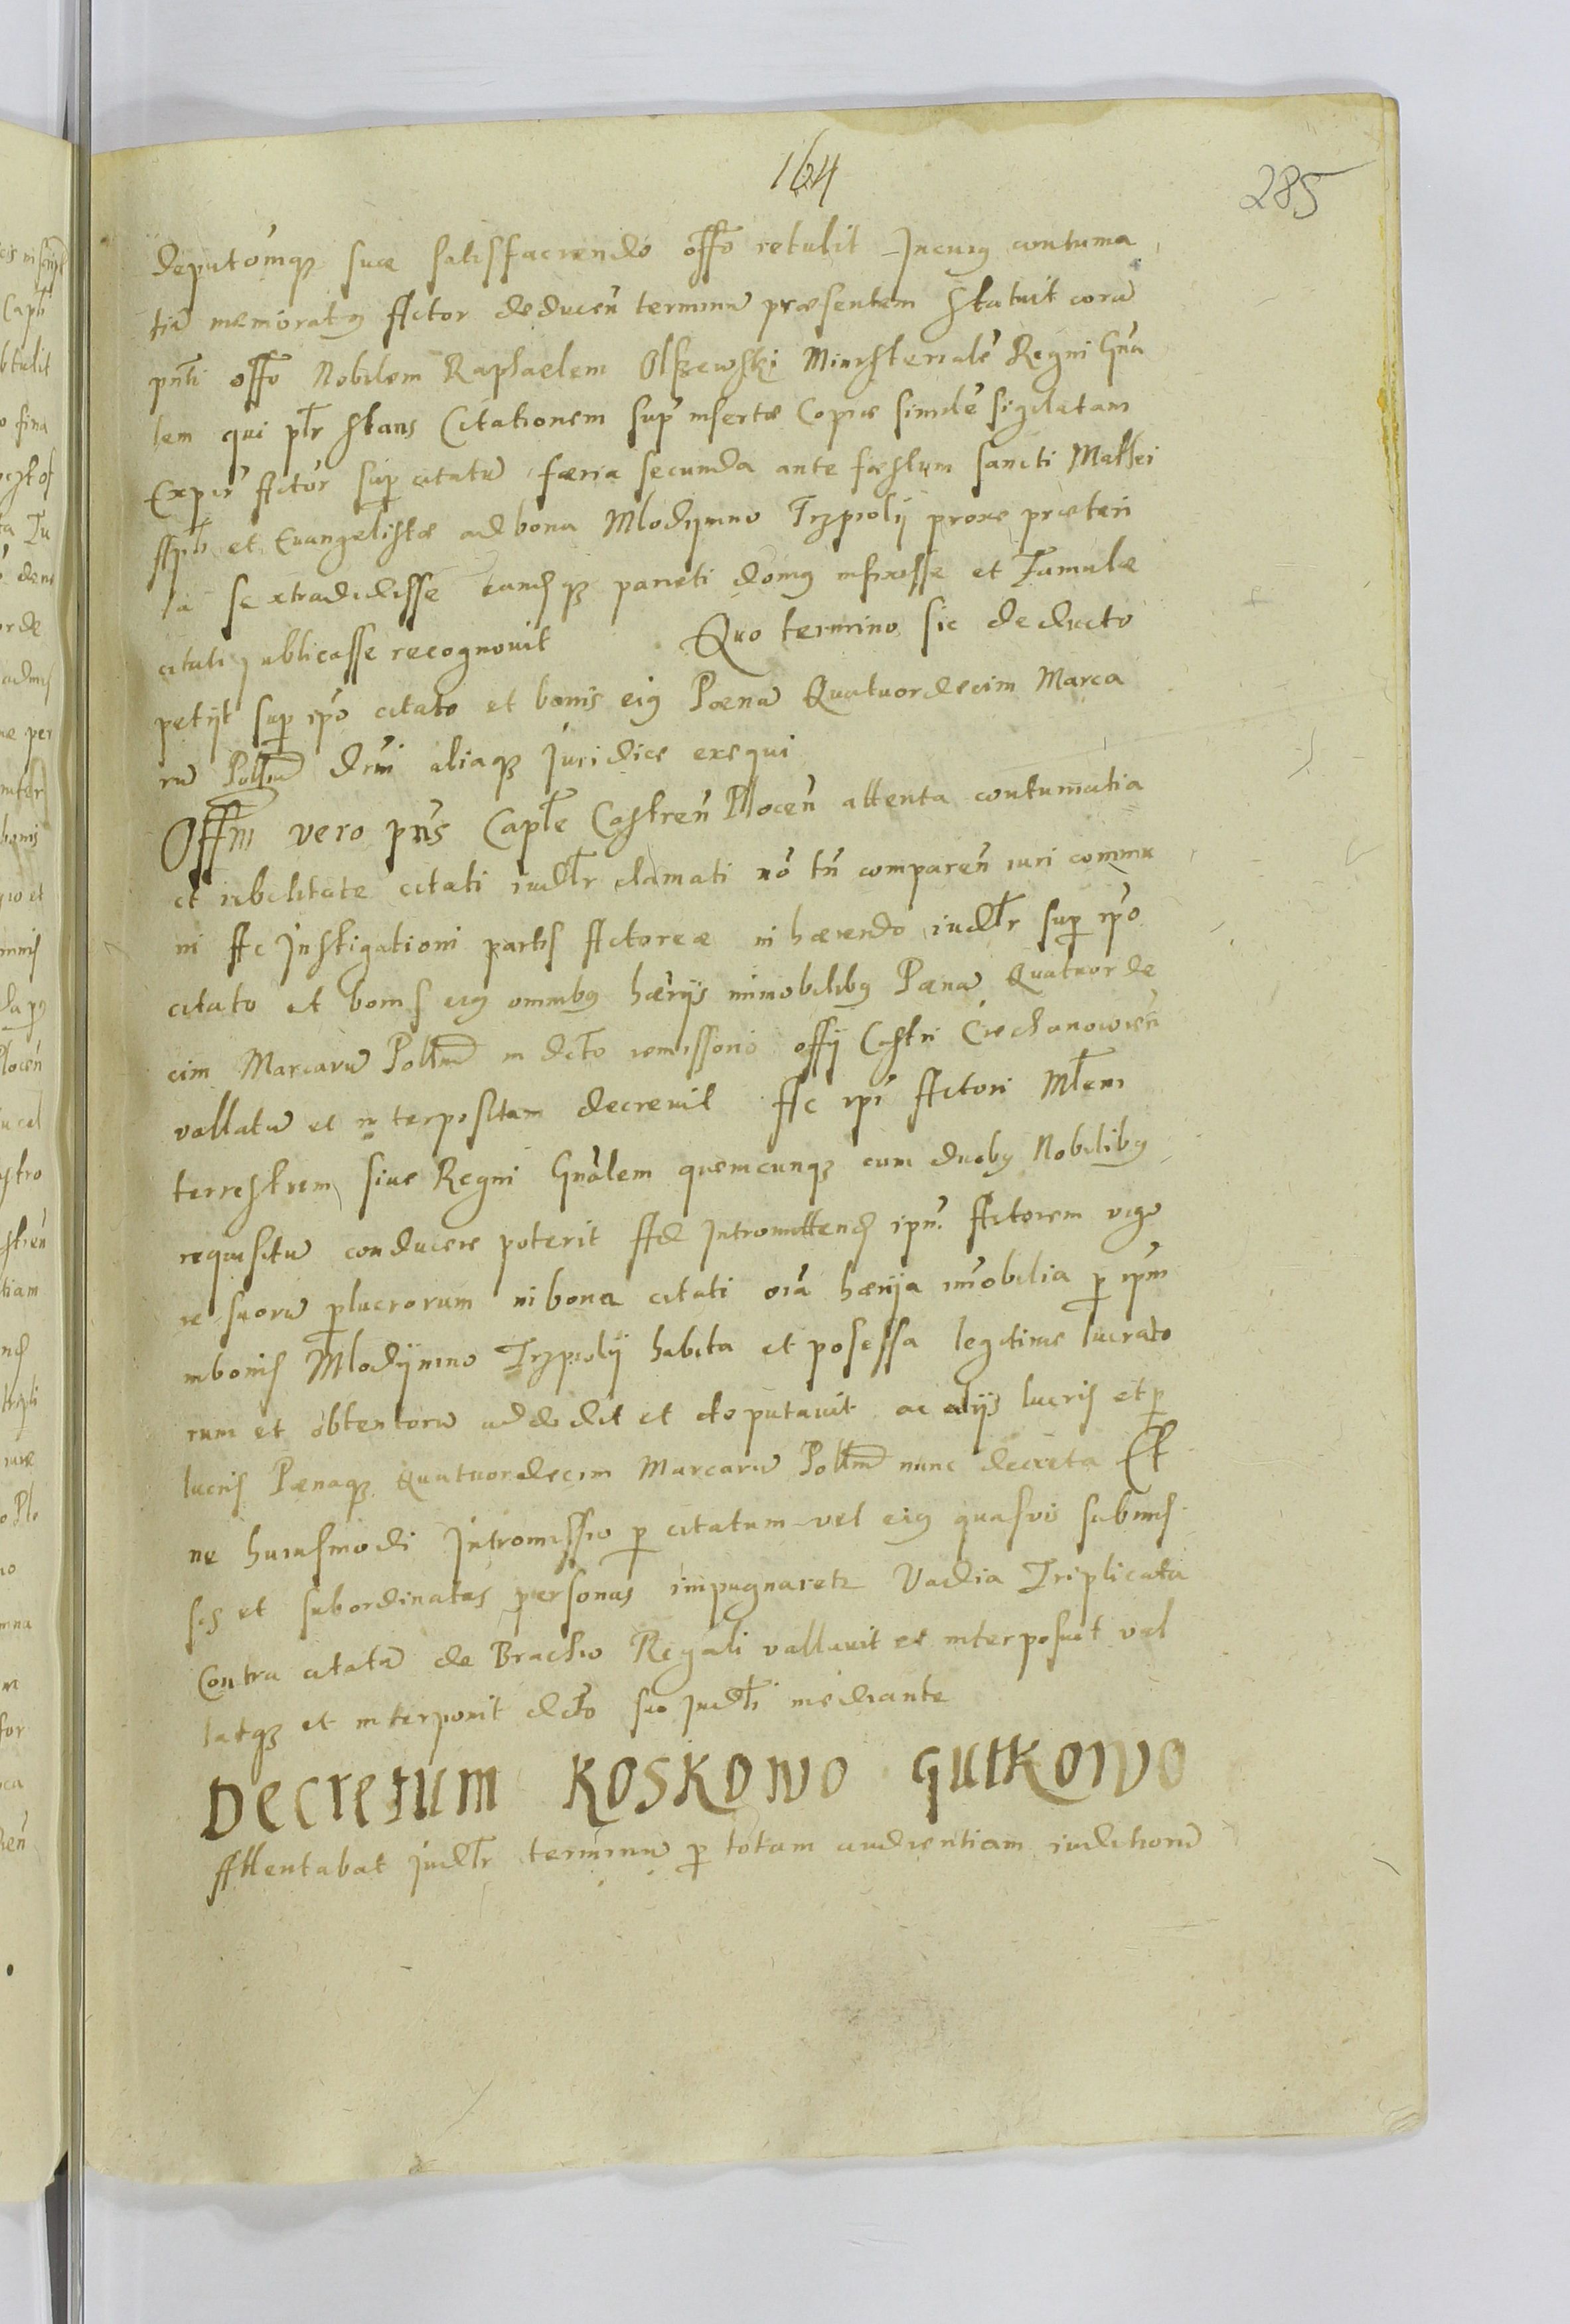 164
285
deputómq₃ suæ satisfaciendo offo retulit Incuiꝰ contuma
tiā memoratꝰ Actor deduceñ terminū præsentem statuit corā
pn̄ti offo Nobilem Raphaelem Olszewski Ministerialē Regni Gn̄a
lem qui pl̄r stans Citationem sup̄ insertæ Copiæ similē sigilatam
Exper̄ Actōr sup citatū færia secunda ante fæstum sancti Mathei
Appl̄i et Euangelistæ ad bona Mlodynino Trzpioly proxe præteri
ta se extradidisse eandq₃ parieti domꝰ infixisse et Famulæ
citati publicasse recognouit Quo termino sic deducto
petyt sup ip̄o citato et bonis eiꝰ Pœnā Quatuordecim Marca
rū Pollm̄ dcrn̄i aliaq₃ juridice exequi
Offm vero pn̄s Capl̄e Castreñ Ploceñ attenta contumatia
et rebelitate citati judl̄r clamati nō tn̄ compareñ iuri commu
ni Ac Instigationi partis Actoreæ inhærendo iudl̄r sup ip̄o
citato et bonis eiꝰ omnibꝰ hærijs immobilibꝰ Pænā Quatuorde
cim Marcarū Pollm̄ in dcto remissorio offij Castri Ciechanowieñ
vallatū et interpositam decreuit Ac ip̄i Actori Ml̄em
terrestrem siue Regni Gnālem quemcunq₃ cum duobꝰ Nobilibꝰ
requisitū conducere poterit Ad Intromittend ipn̄ Actorem vigo
re suorū plucrorum in bona citati oīa hærija im̄obilia p ip̄m
inbonis Mlodynino Trzpioly habita et posessa legitime lucrato
rum et obtentorū addidit et deputauit ac alijs lucris et p
lucris Pænaq₃ Quatuordecim Marcarū Pollm̄ nunc decreta Et
ne huiusmodi Intromissio p citatum vel eiꝰ quasvis submis
sas et subordinatas personas impugnaretr Vadia Triplicata
Contra citatū de Brachio Regali vallauit et interposuit val
latq₃ et interponit dcto suo judl̄i mediante
Decretum Koskowo Gutkowo
Attentabat judl̄r terminū p totam audientiam iuditiorū